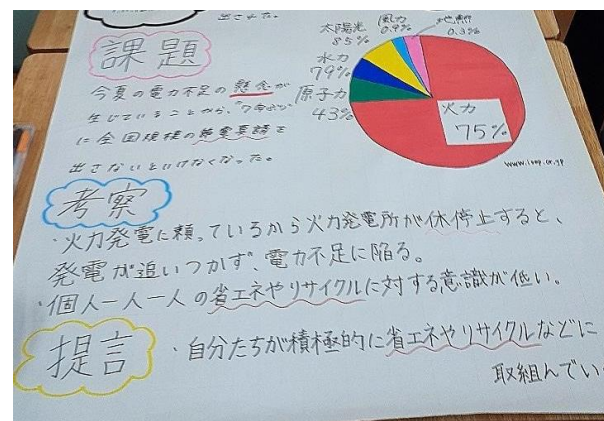 出された。
課題
今夏の電力不足の懸念が
生じていることから、"7年ぶり"
に全国規模の節電要請を
出さないといけなくなった。
太陽光
85%
風力
0.9%
地熱
0.3%
水力
79%
原子力
43%
火力
75%
考察
・火力発電に頼っているから火力発電所が休停止すると、
発電が追いつかず、電力不足に陥る。
・個人一人一人の省エネやリサイクルに対する意識が低い。
提言
・自分たちが積極的に省エネやリサイクルなどに
取組んでい